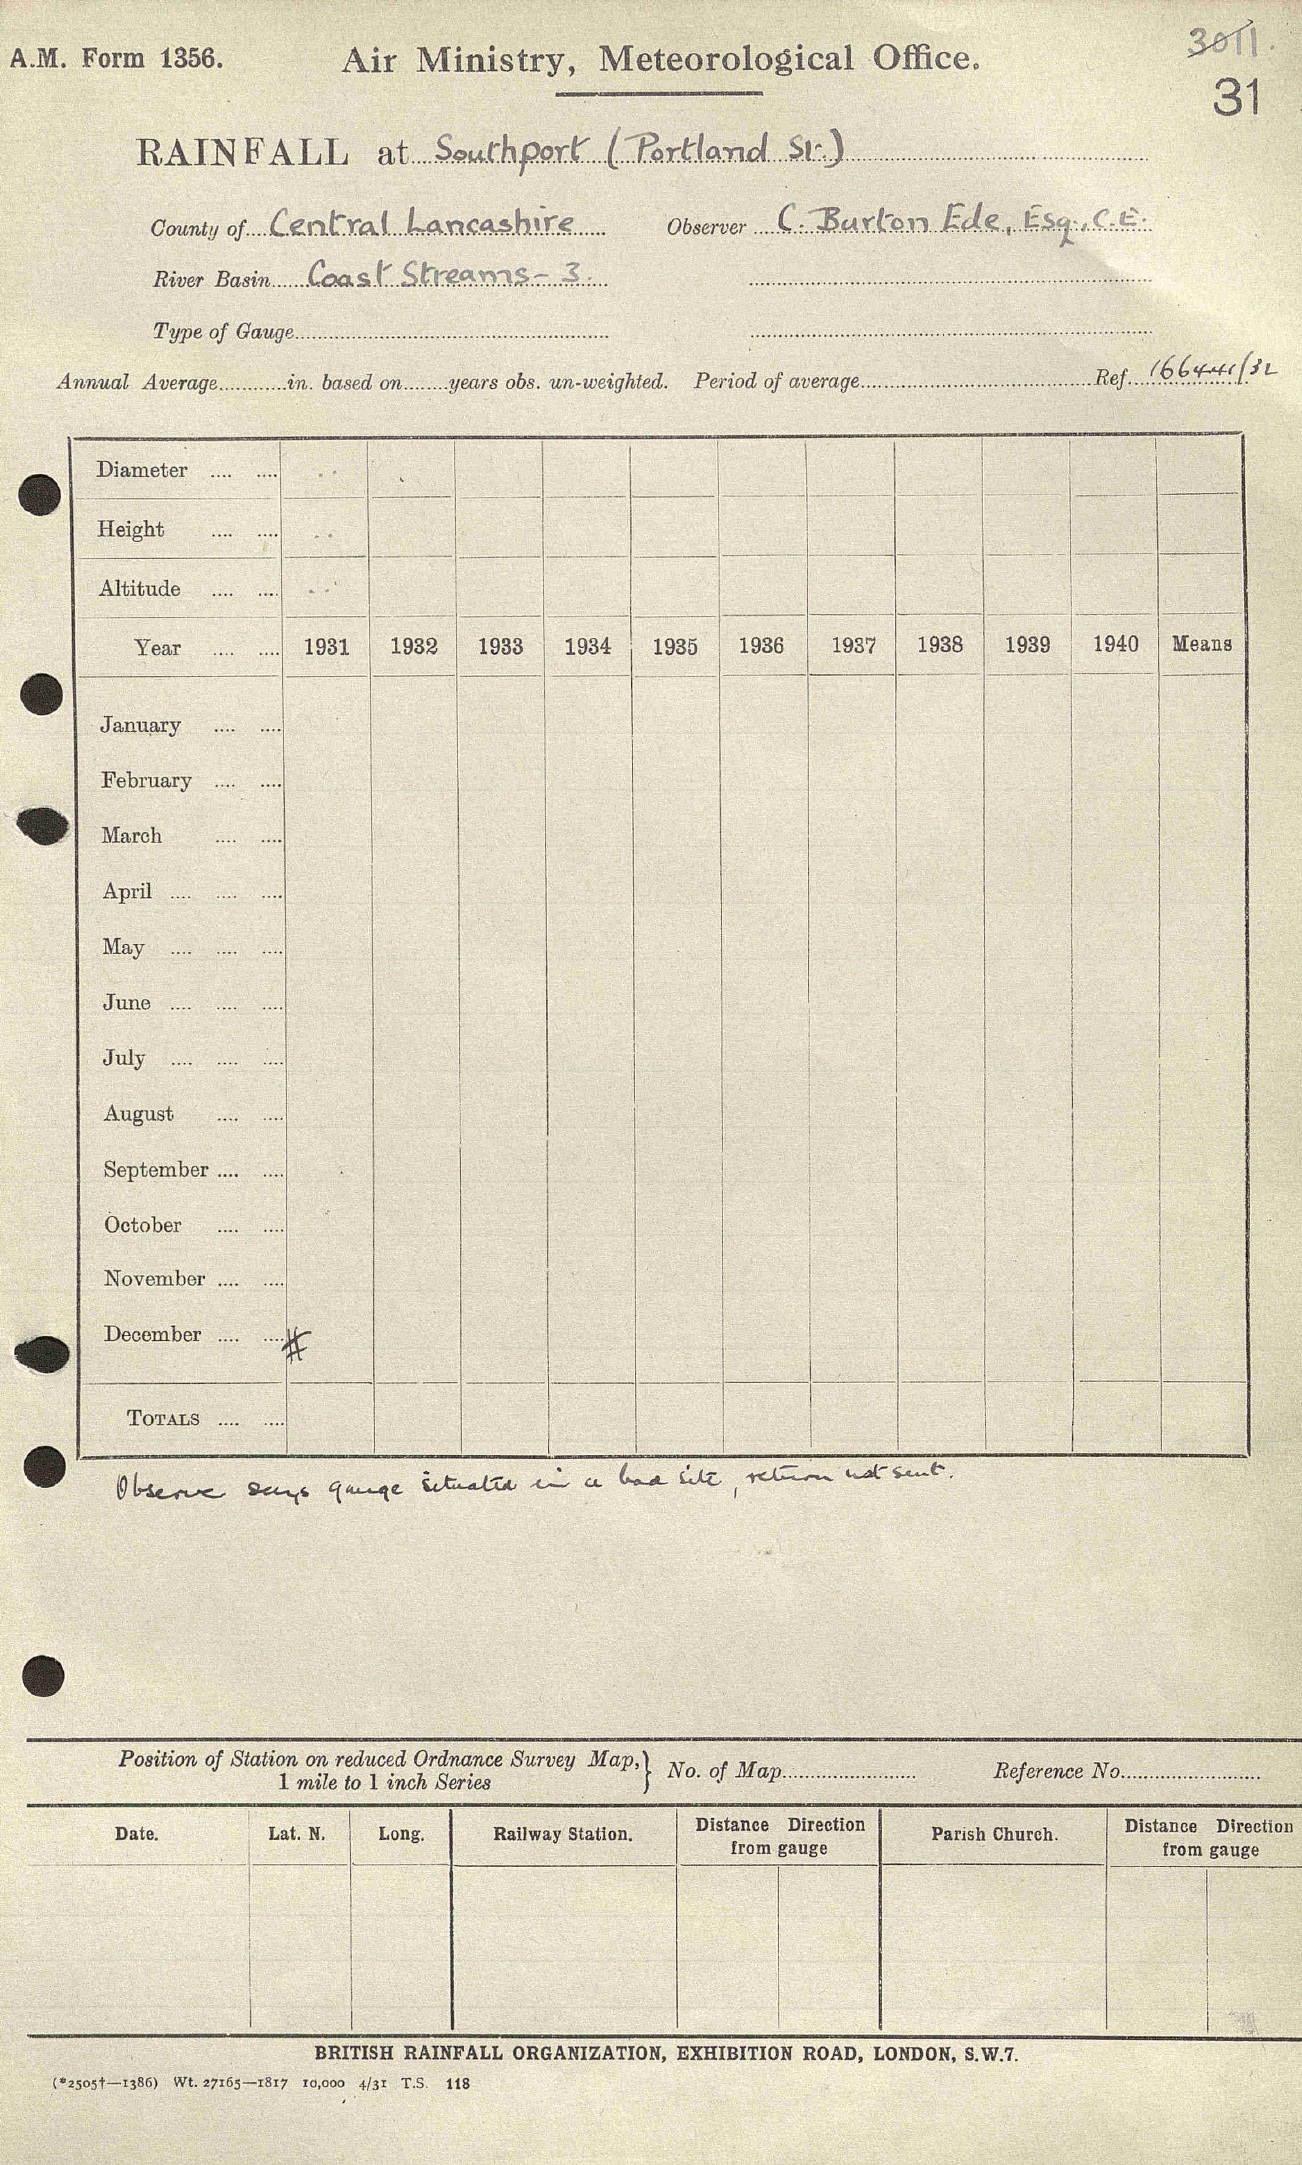 A.M. Form 1356.
Air Ministry, Meteorological Office.
3011.
31
RAINFALL at Southport (Portland St.)
County of Central Lancashire
Observer C. Burton Ede, Esq., C.E.
River Basin Coast Streams - 3.
Type of Gauge
Annual Average in. based on years obs. un-weighted. Period of average Ref. 166441/32
Diameter
Height
Altitude
Year 1931 1932 1933 1934 1935 1936 1937 1938 1939 1940 Means
January
February
March
April
May
June
July
August
September
October
November
December #
TOTALS
Observer says gauge situated in a bad site, return not sent.
Position of Station on reduced Ordnance Survey Map,
1 mile to 1 inch Series
No. of Map Reference No.
Date. Lat. N. Long. Railway Station. Distance Direction from gauge Parish Church. Distance Direction from gauge
BRITISH RAINFALL ORGANIZATION, EXHIBITION ROAD, LONDON, S.W.7.
(*2505†—1386) Wt. 27165—1817 10,000 4/31 T.S. 118